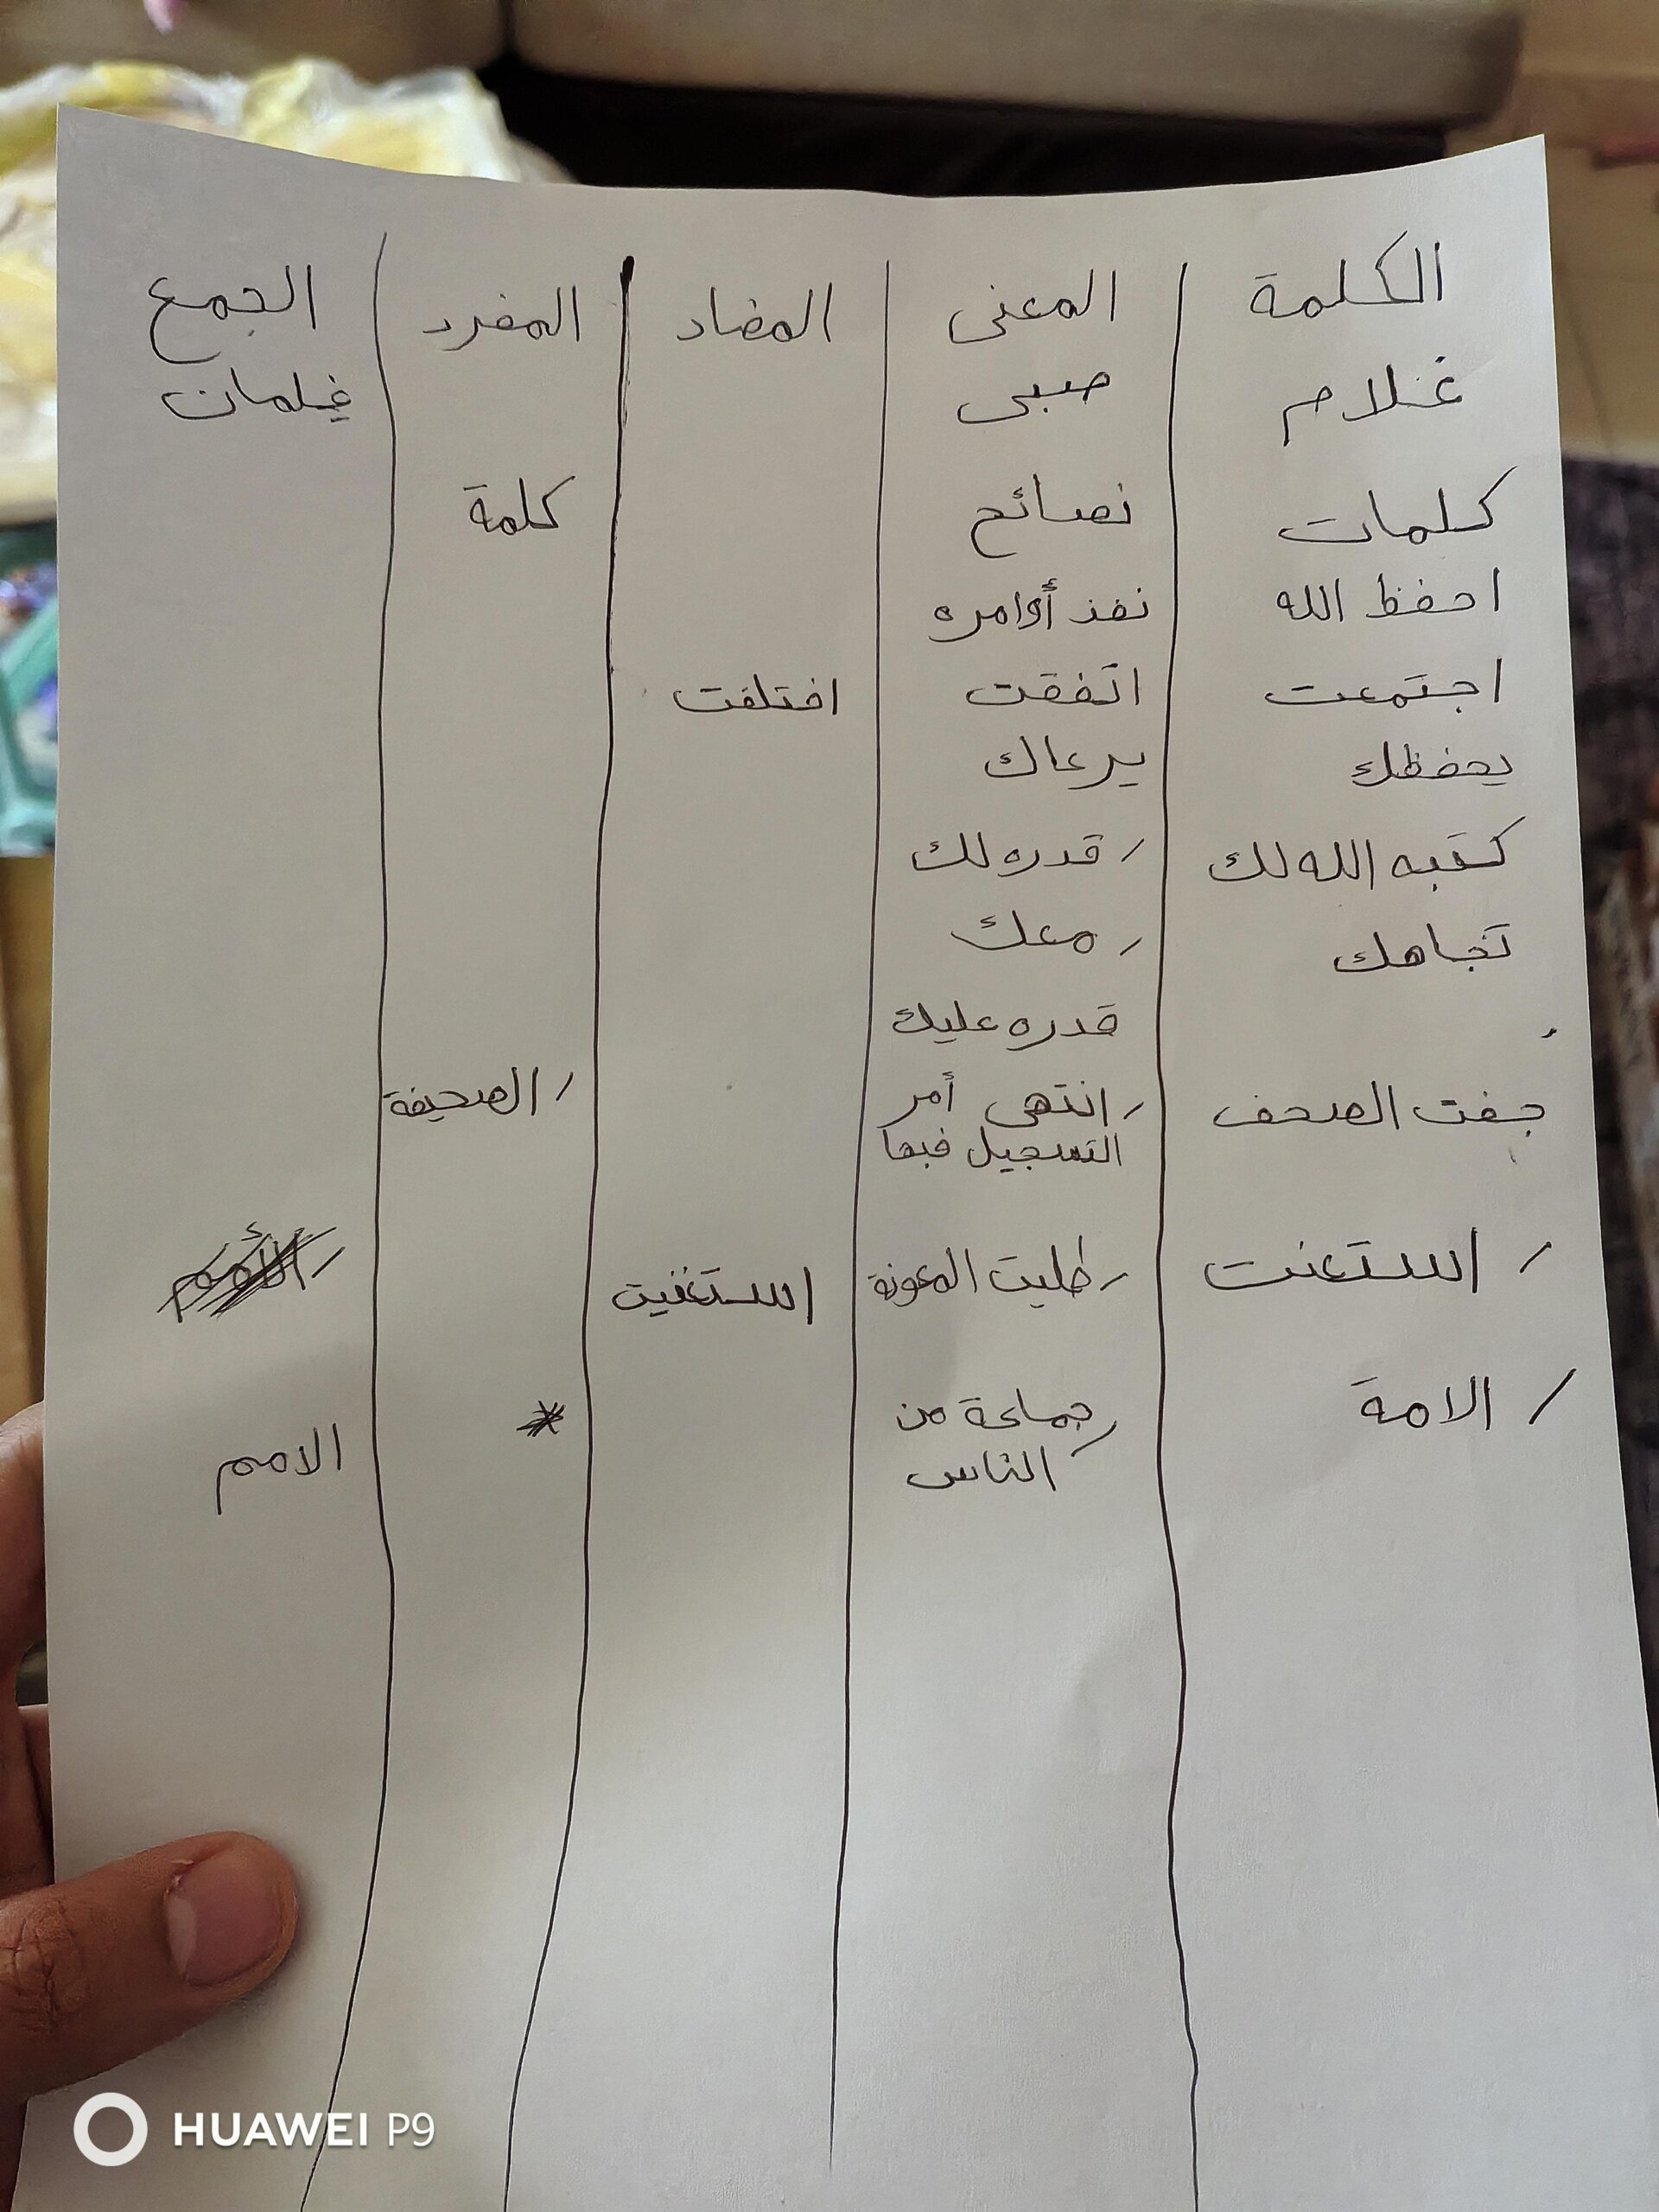 الكلمة المعنى المضاد المفرد الجمع
غلام صبى غلمان
كلمات نصائح كلمة
احفظ الله نفذ أوامره
اجتمعت اتفقت اختلفت
يحفظك يرعاك
كتبه الله لك قدره لك
تجاهك معك
قدره عليك
جفت الصحف انتهى أمر الصحيفة
التسجيل فيها
استعنت طلبت المعونة استغنيت
الامة جماعة من * الامم
الناس
HUAWEI P9